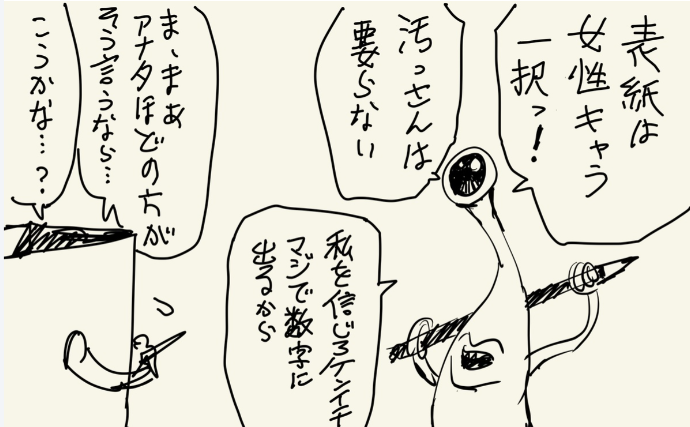 表紙は
女性キャラ
一択っ!
汚っさんは
要らない
私を信じろケンイチ
マジで数字に
出るから
ま、まあ
アナタほどの方が
そう言うなら…
こうかな…?